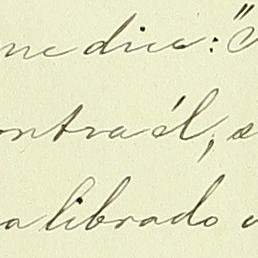 me dice: "
ontra él, s
a librado